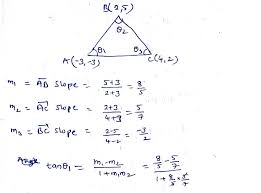 B(2,5)
θ₂
θ₁
θ₃
A(-3,-3)
C(4,2)
m₁ = A̅B̅ slope = (5+3)/(2+3) = 8/5
m₂ = A̅C̅ slope = (2+3)/(4+3) = 5/7
m₃ = B̅C̅ slope = (2-5)/(4-2) = -3/2
Angle tanθ₁ = (m₁-m₂)/(1+m₁m₂) = (8/5 - 5/7)/(1 + 8/5 × 5/7)